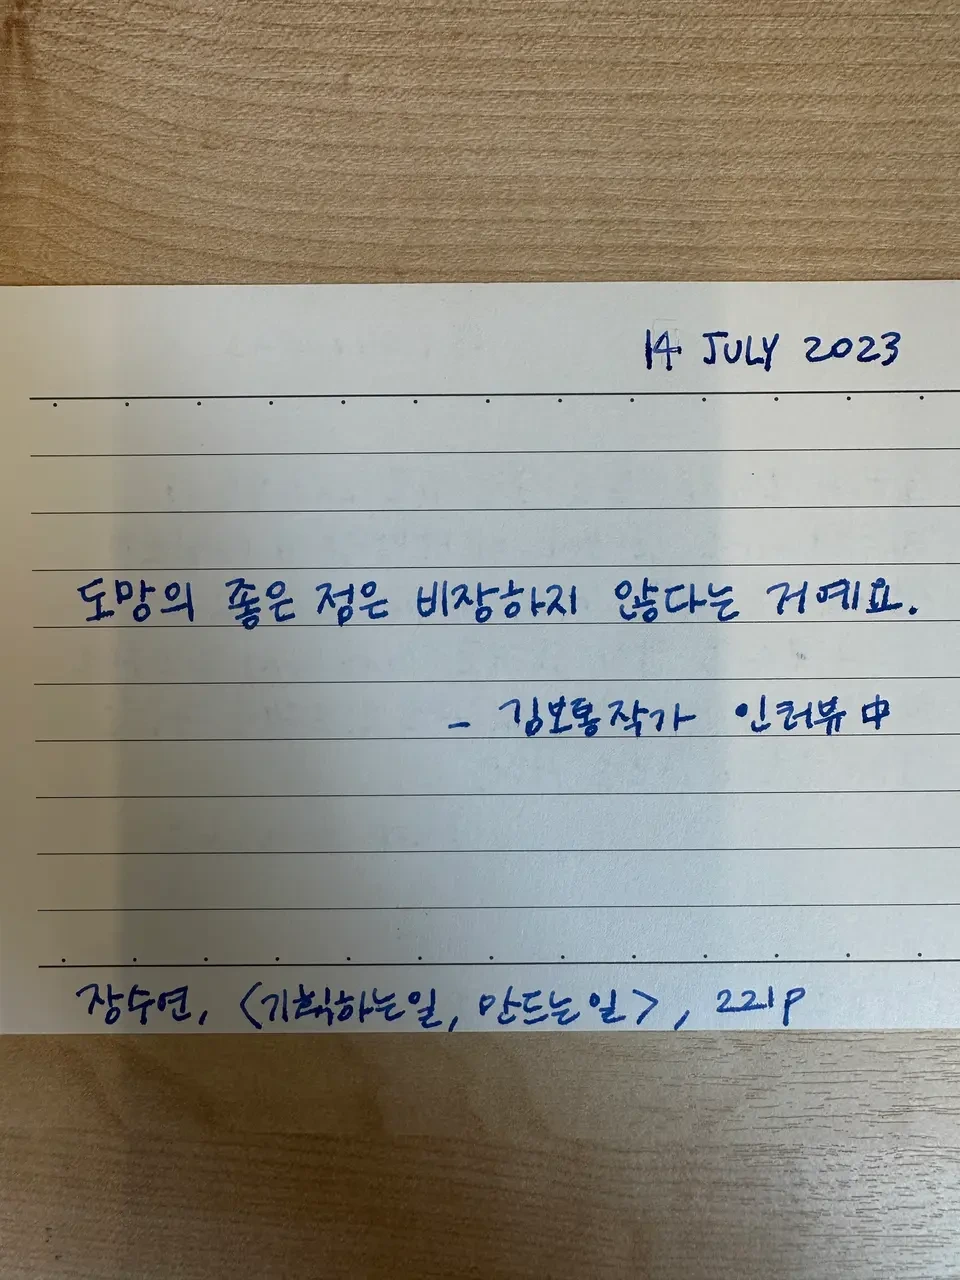 14 JULY 2023
도망의 좋은 점은 비장하지 않다는 거예요.
- 김보통작가 인터뷰 中
장수연, <기획하는일, 만드는일>, 221p